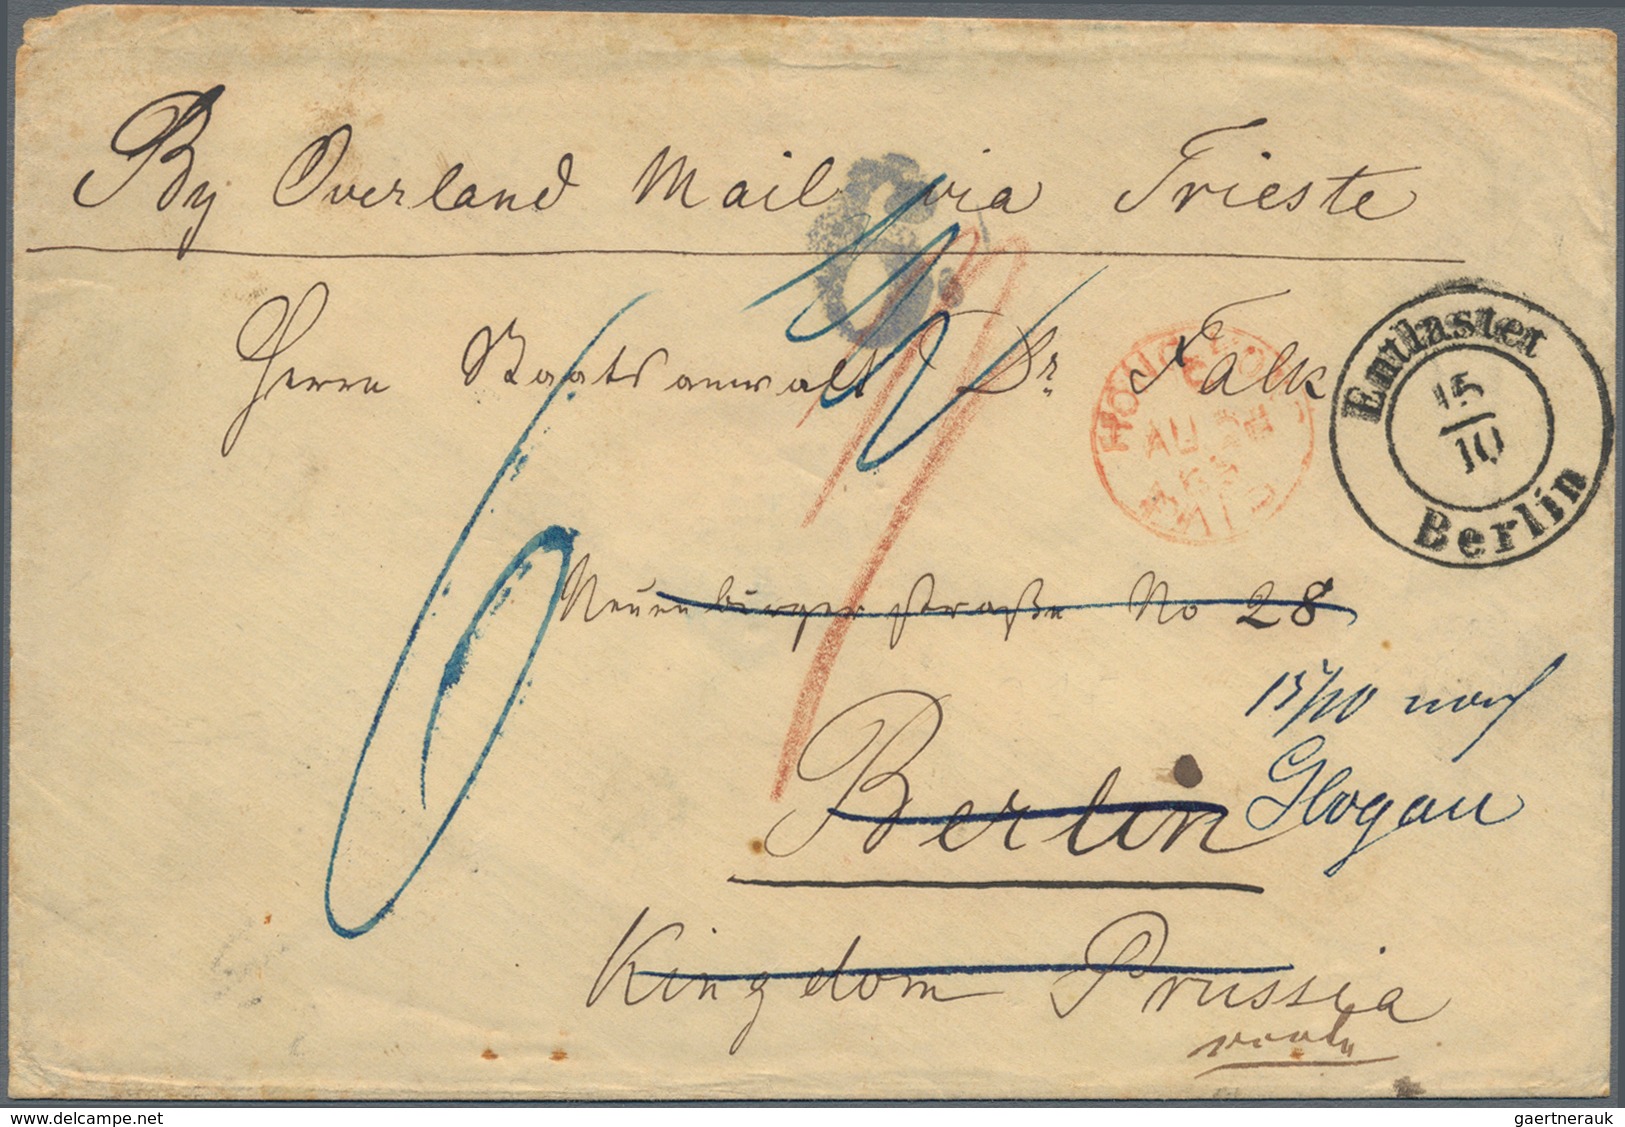 By Overland Mail via Trieste
Herrn Staatsanwalt Dr. Falk
HONG KONG
AU
Entlastet
15/10
Berlin
6
Neuenburger Straße No 28
15/10 nach
Glogau
Berlin
Kingdom Prussia
www.delcampe.net
gaertnerauk